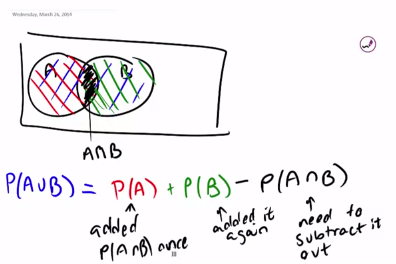 Wednesday, March 26, 2014
A
B
A∩B
P(A∪B) = P(A) + P(B) - P(A∩B)
added
P(A∩B) once
added it
again
need to
subtract it
out